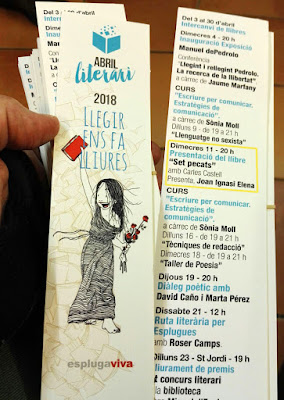 ABRIL
literari
2018
LLEGIR
ENS FA
LLIURES
esplugaviva
Del 3 al 30 d'abril
Intercanvi de llibres
Dimecres 4 - 20 h
Inauguració Exposició
Manuel dePedrolo.
Conferència
"Llegint i rellegint Pedrolo.
La recerca de la llibertat"
a càrrec de Jaume Martany
CURS
"Escriure per comunicar.
Estratègies de
comunicació".
a càrrec de Sònia Moll
Dilluns 9 - de 19 a 21h
"Llenguatge no sexista"
Dimecres 11 - 20 h
Presentació del llibre
"Set pecats"
amb Carles Castell
Presenta, Joan Ignasi Elena
CURS
"Escriure per comunicar.
Estratègies de
comunicació".
a càrrec de Sònia Moll
Dilluns 16 - de 19 a 21h
"Tècniques de redacció"
Dimecres 18 - de 19 a 21h
"Taller de Poesia"
Dijous 19 - 20 h
Diàleg poètic amb
David Caño i Marta Pérez
Dissabte 21 - 12 h
Ruta literària per
Esplugues
amb Roser Camps.
Dilluns 23 - St Jordi - 19 h
lliurament de premis
t concurs literari
a biblioteca